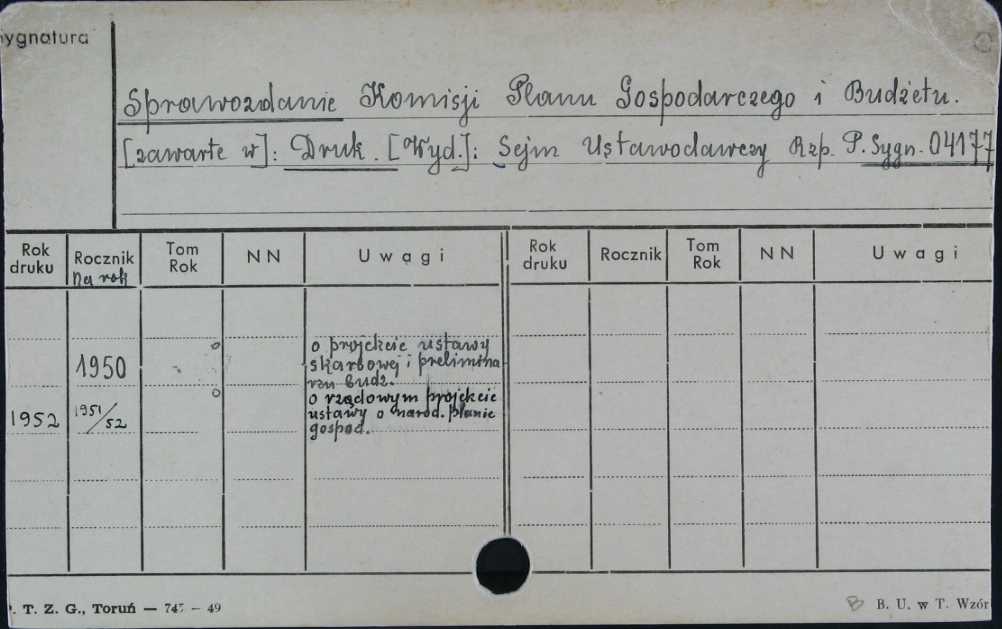 Sygnatura
Sprawozdanie Komisji Planu Gospodarczego i Budżetu.
[zawarte w]: Druk. [Wyd.]: Sejm Ustawodawczy Rzp. P. Sygn. 04177
Rok druku Rocznik Tom Rok NN Uwagi Rok druku Rocznik Tom Rok NN Uwagi
Na rok
1950 o projekcie ustawy
skarbowej i prelimina
rzu budż.
1952 1951/52 o rządowym projekcie
ustawy o narod. planie
gospod.
. T. Z. G., Toruń — 747 — 49
B B. U. w T. Wzór